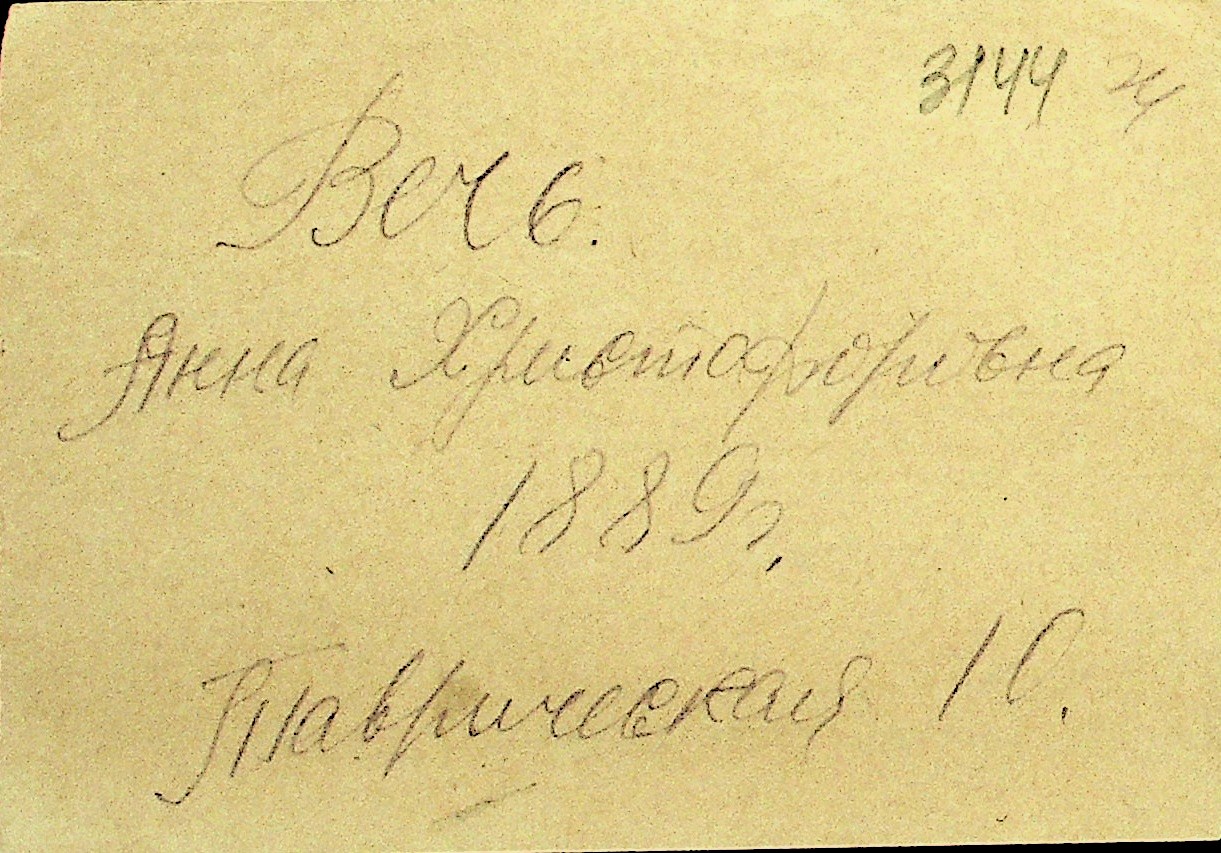 3144
Вечь.
Анна Христофоровна
1889г.
Таврическая 10.